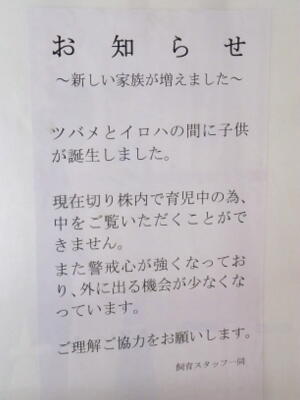 お知らせ
～新しい家族が増えました～
ツバメとイロハの間に子供
が誕生しました。
現在切り株内で育児中の為、
中をご覧いただくことがで
きません。
また警戒心が強くなってお
り、外に出る機会が少なくな
っています。
ご理解ご協力をお願いします。
飼育スタッフ一同